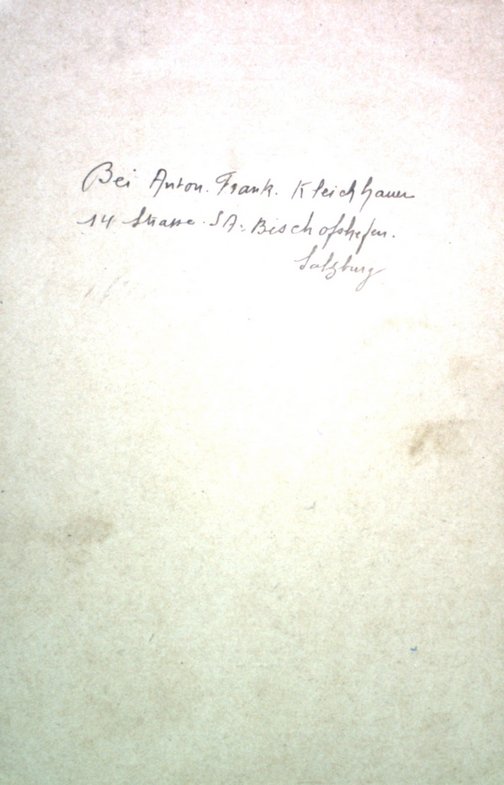 Bei Anton. Frank. Kleichhauer
14 Strasse. SA. Bischofshofen.
Salzburg